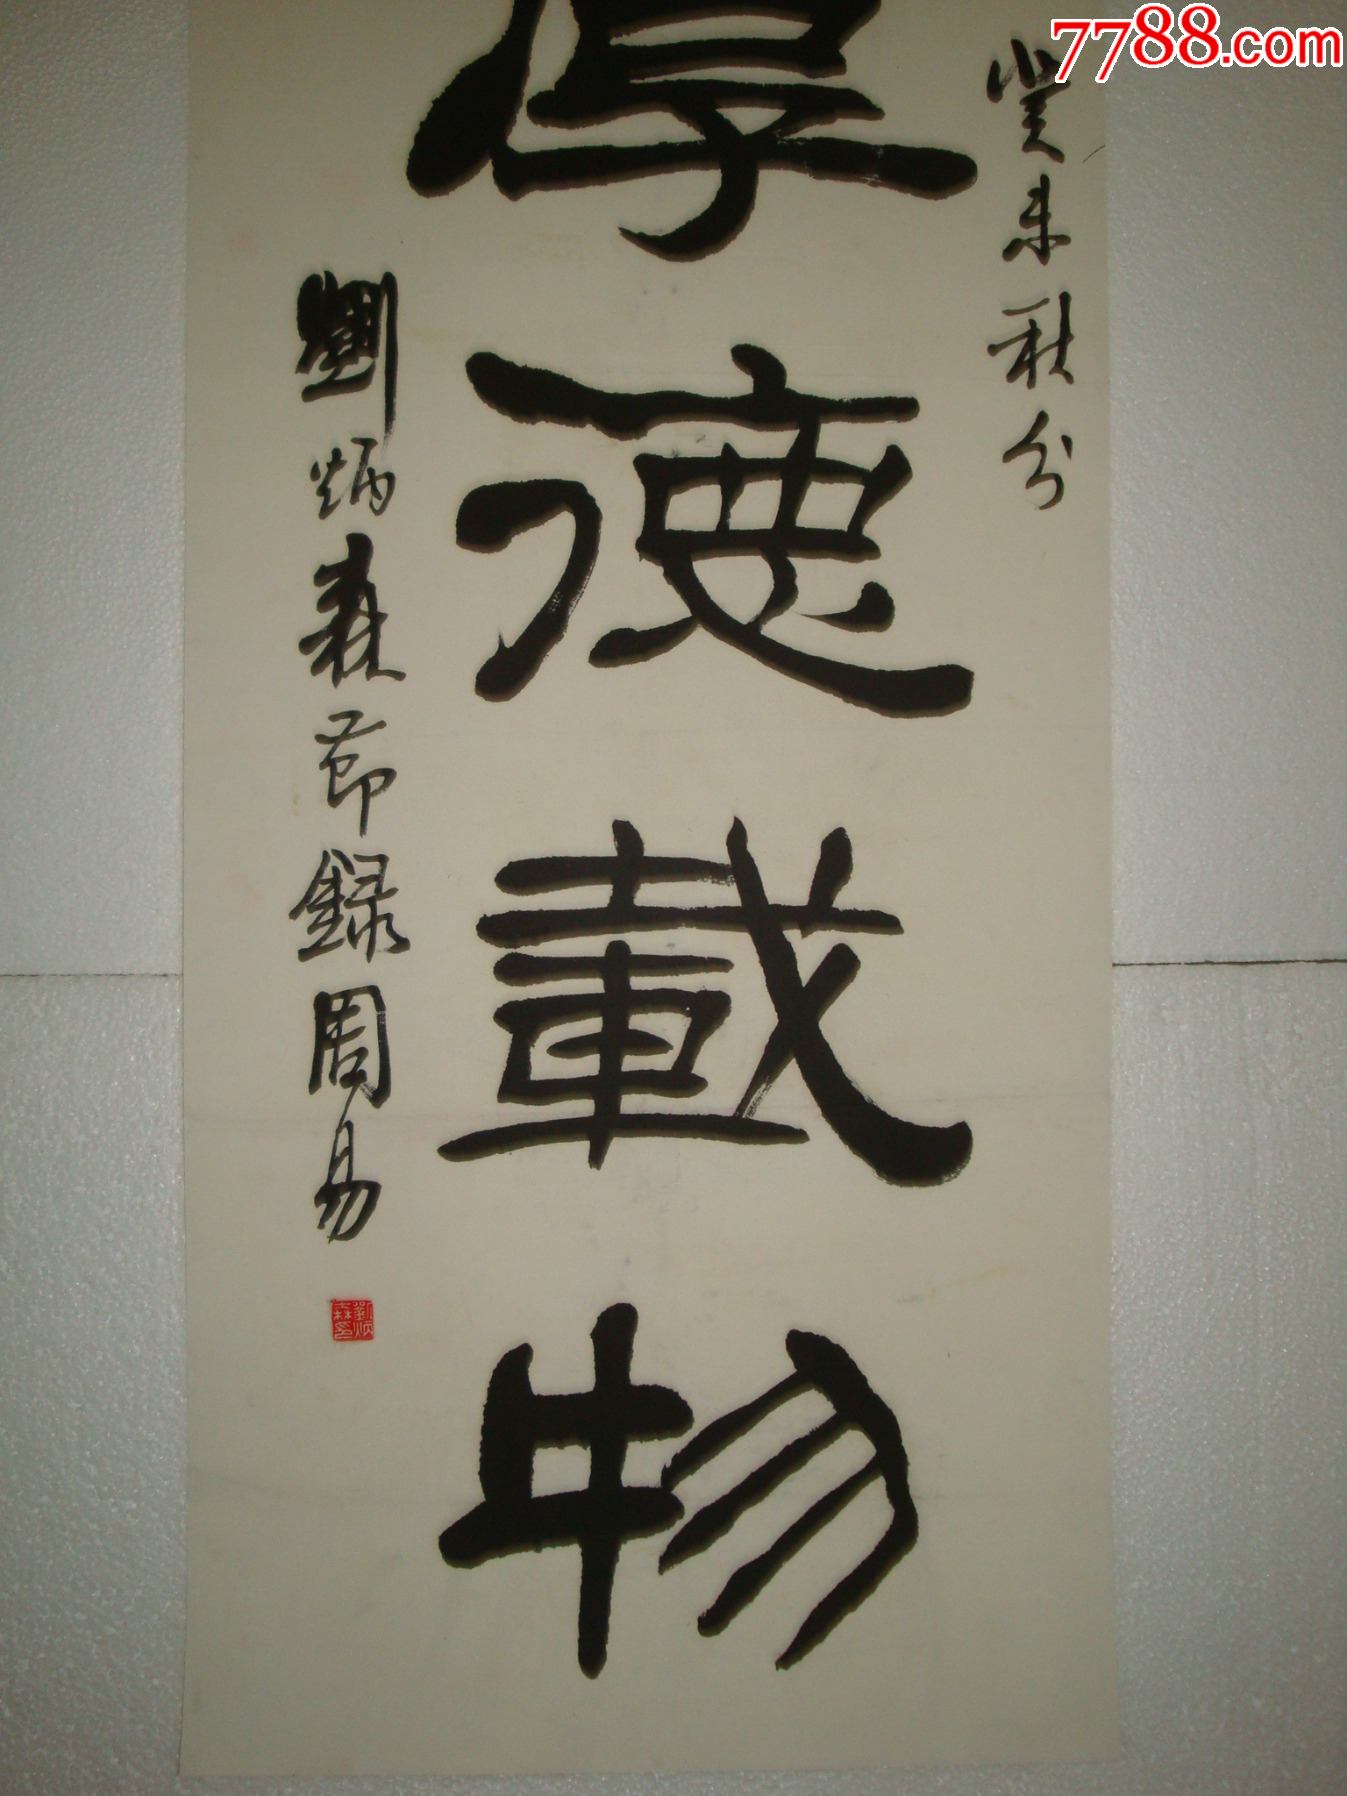 7788.com
癸未秋分
厚德載物
劉炳森節録周易
劉炳森印